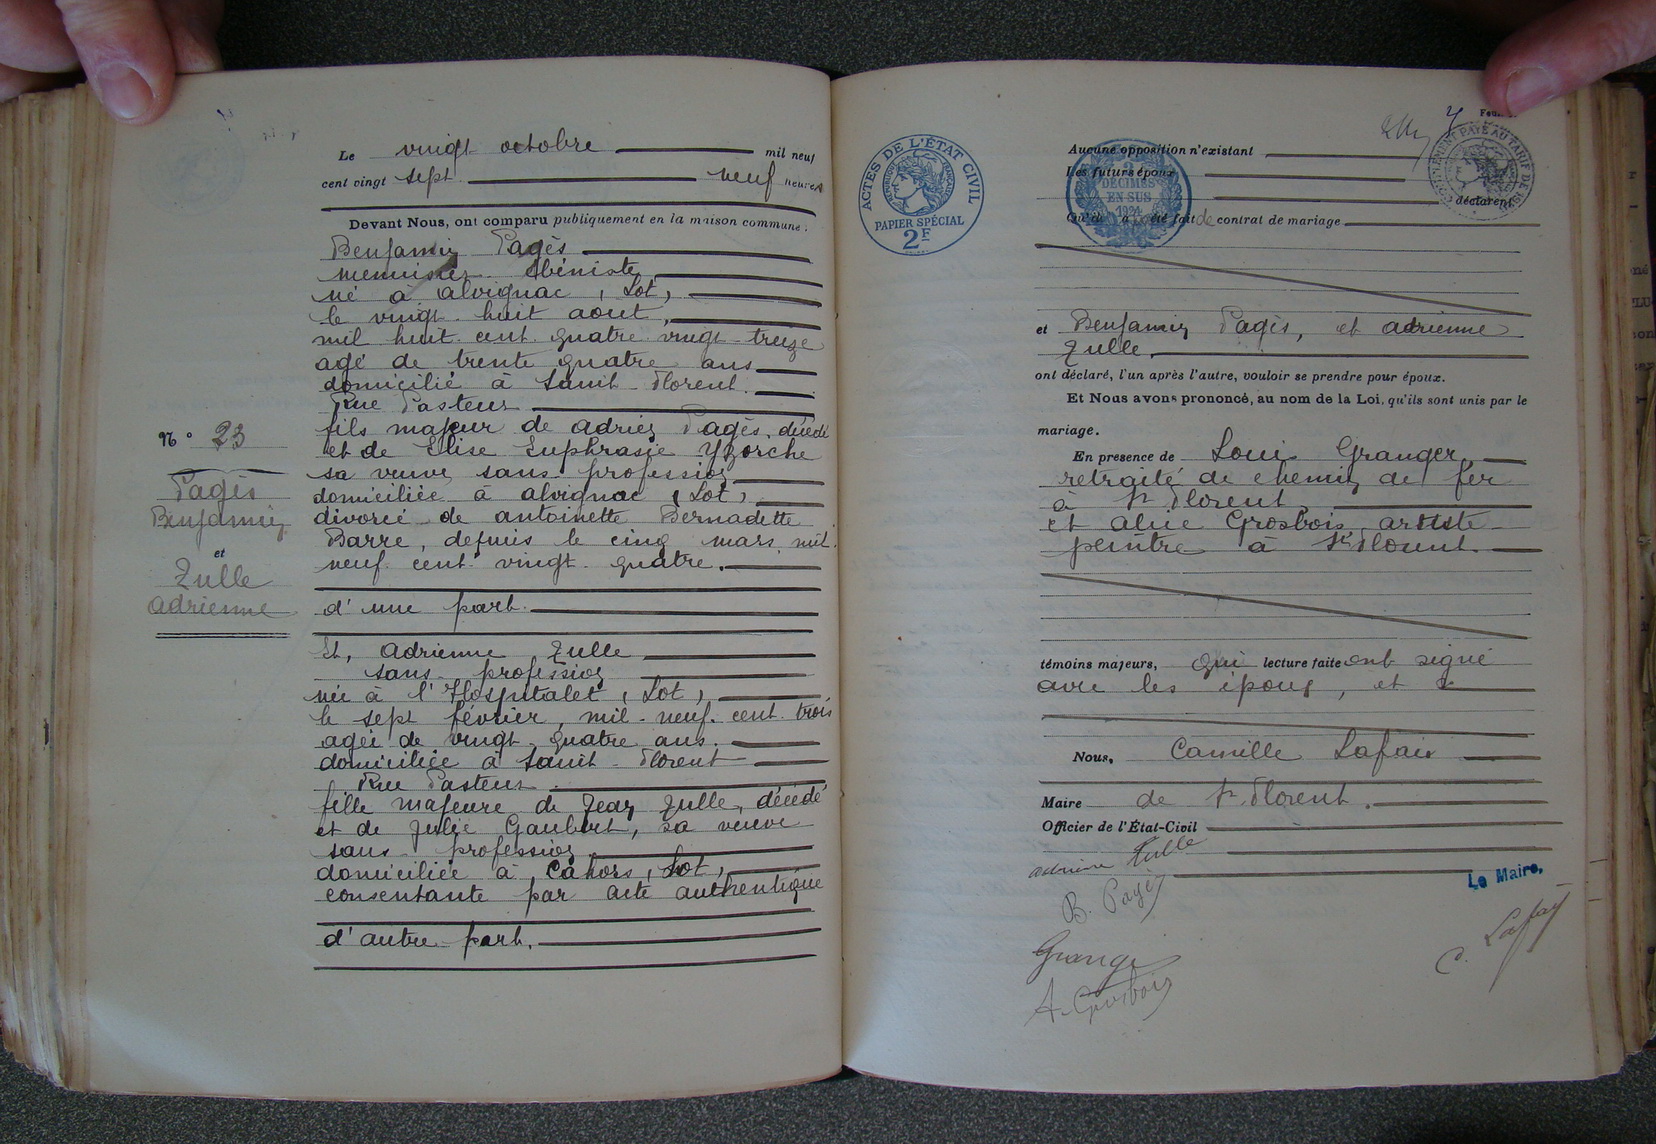 Le vingt octobre mil neuf
cent vingt sept neuf heures
Devant Nous, ont comparu publiquement en la maison commune :
Benjamin Pagès
menuisier ébéniste
né a alvignac (Lot)
le vingt huit aout,
mil huit cent quatre vingt treize
agé de trente quatre ans
domicilié à Saint-Florent
Rue Pasteur
fils majeur de adrien Pagès, décédé
et de Elise Euphrasie Yzorche
sa veuve sans profession
domiciliée à alvignac (Lot)
divorcé de antoinette Bernadette
Barre, depuis le cinq mars mil
neuf cent vingt quatre.
d'une part.
Et, adrienne Zulle
sans profession
née à l'Hospitalet (Lot)
le sept février, mil neuf cent trois
agée de vingt quatre ans.
domiciliée à Saint-Florent
Rue Pasteur.
fille majeure de Jean Zulle, décédé
et de Julie Gaubert, sa veuve
sans profession
domiciliée à Cahors, (Lot)
consentante par acte authentique
d'autre part.
N° 23
Pagès
Benjamin
et
Zulle
adrienne
ACTES DE L'ÉTAT CIVIL
PAPIER SPÉCIAL
2F
2
DÉCIMES
EN SUS
1924
Aucune opposition n'existant
Les futurs époux
déclarent
Qu'il a été fait de contrat de mariage
et Benjamin Pagès, et adrienne
Zulle.
ont déclaré, l'un après l'autre, vouloir se prendre pour époux.
Et Nous avons prononcé, au nom de la Loi, qu'ils sont unis par le
mariage.
En presence de Louis Granger
retraité de chemin de fer
à St Florent
et alice Grosbois artiste
peintre à St Florent.
témoins majeurs, qui lecture faite ont signé
avec les époux, et
Nous, Camille Lafaix
Maire de St Florent.
Officier de l'État-Civil
adrienne Zulle
B. Pagès
Granger
A. Grosbois
Le Maire,
C. Lafaix